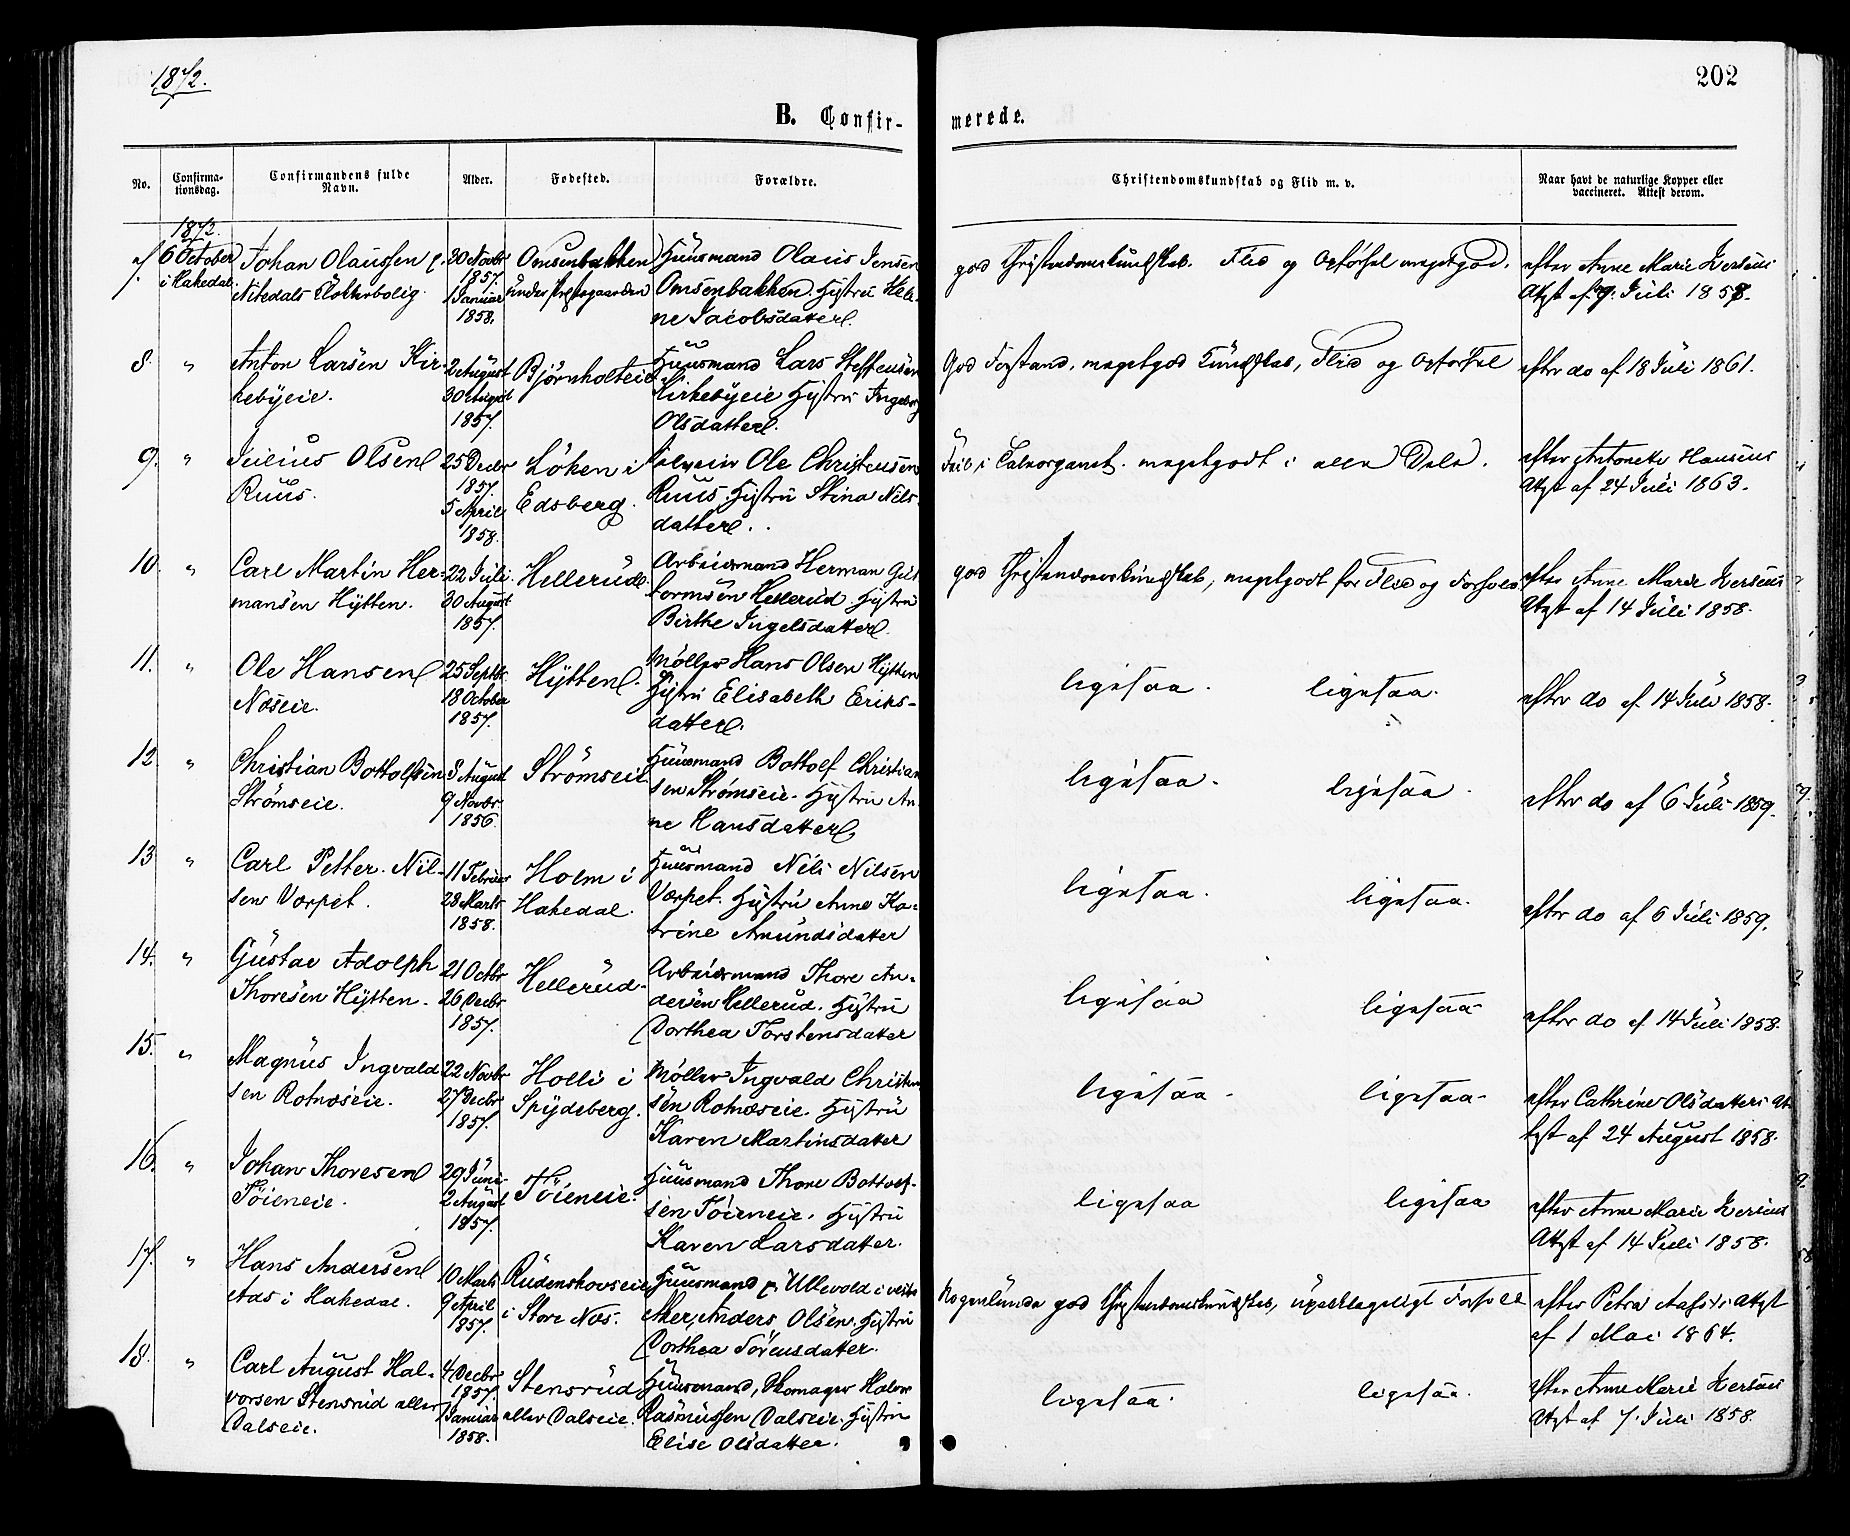 1872.
202
B. Confir-
merede.
No.
Confirma-
tionsdag.
Confirmandens fulde
Navn.
Alder.
Fødested.
Forældre.
Christendomskundskab og Flid m. v.
Naar havt de naturlige Kopper eller
vaccineret. Attest derom.
1872.
7. 6 October Johan Olaussen p. 30 Novbr Omsenbakken Huusmand Olaus Jensen god Christendomskundskab. Flid og Opførsel megetgod. efter Anne Marie
i Hakedal. Nitedals Klokkerbolig. 1857. under Præstegaarden Omsenbakken. Hustru Hele- Attest af 9. Juli 1858.
1 Januar ne Jacobsdatter.
1858.
8. " Anton Larsen Kir- 2 August Bjørnholteie Huusmand Lars Steffensen God Forstand, megetgod Kundskab, Flid og Opførsel efter do af 18 Juli 1861.
kebyeie. 30 August Kirkebyeie Hustru Ingeborg
1857. Olsdatter.
9. " Julius Olsen 25 Decbr Löken i Ole Christensen Feil i Taleorganet. megetgodt i alle Dele. efter Antonette Hansens
Ruus. 1857. Edsberg. Ruus Hustru Stina Nils- Attest af 24 Juli 1863.
5 April datter.
1858.
10. " Carl Martin Her- 22 Juli. Hellerud. Arbeidsmand Herman Gut- god Christendomskundskab, megetgodt for Flid og Forhold efter Anne Marie
mansen Hytten. 30 August tormsen Hellerud. Hustru Attest af 14 Juli 1858.
1857. Birthe Ingelsdatter.
11. " Ole Hansen 25 Septbr. Hytten. Møller Hans Olsen Hytten ligesaa. ligesaa. efter do af 14 Juli 1858.
Næseie. 18 October Hustru Elisabeth Eriks-
1857. datter.
12. " Christian Bottolfsen 8 August Strömseie Huusmand Bottolf Christian ligesaa. ligesaa. efter do af 6 Juli 1859.
Strömseie. 9 Novbr. sen Strömseie. Hustru An-
1856. ne Hansdatter.
13 " Carl Petter Nil- 11 Februar Holm i Huusmand Nils Nilsen ligesaa. ligesaa. efter do af 6 Juli 1859.
sen Vorpet. 28 Marts Hakedal. Vorpet. Hustru Anne Ka-
1858. trine Amundsdatter
14. " Gustav Adolph 21 Octbr Hellerud. Arbeidsmand Thore An- ligesaa ligesaa. efter do af 14 Juli 1858.
Thoresen Hytten. 26 Decbr dersen Hellerud. Hustru
1857. Dorthea Torstensdatter
15. " Magnus Ingvald 22 Novbr Holli i Møller Ingvald Christen ligesaa. ligesaa. efter Cathrine Olsdatters At-
sen Rotnæseie. 27 Decbr Spydeberg. sen Rotnæseie. Hustru test af 24 August 1858.
1857. Karen Martinsdatter
16. " Johan Thoresen 29 Juni. Töieneie. Huusmand Thore Bottolf- ligesaa ligesaa efter Anne Marie
Töieneie. 2 August sen Töieneie. Hustru Attest af 14 Juli 1858.
1857. Karen Larsdatter.
17. " Hans Andersen 10 Marts Rudenskovseie Huusmand p. Ullevold i vestre god Christendomskundskab, upaaklageligt Forhold efter Petra Attest
Aas i Hakedal. 9 April i Store Næs. Aker, Anders Olsen. Hustru af 1 Mai 1864.
1857. Dorthea Sörensdatter.
18. " Carl August Hal- 4 Decbr Stensrud Huusmand, Skomager Halvor ligesaa. ligesaa. efter Anne Marie
vorsen Stensrud eller 1857. eller Dalseie. Rasmussen Dalseie. Hustru Attest af 7. Juli 1858.
Dalseie. Januar Elise Olsdatter.
1858.